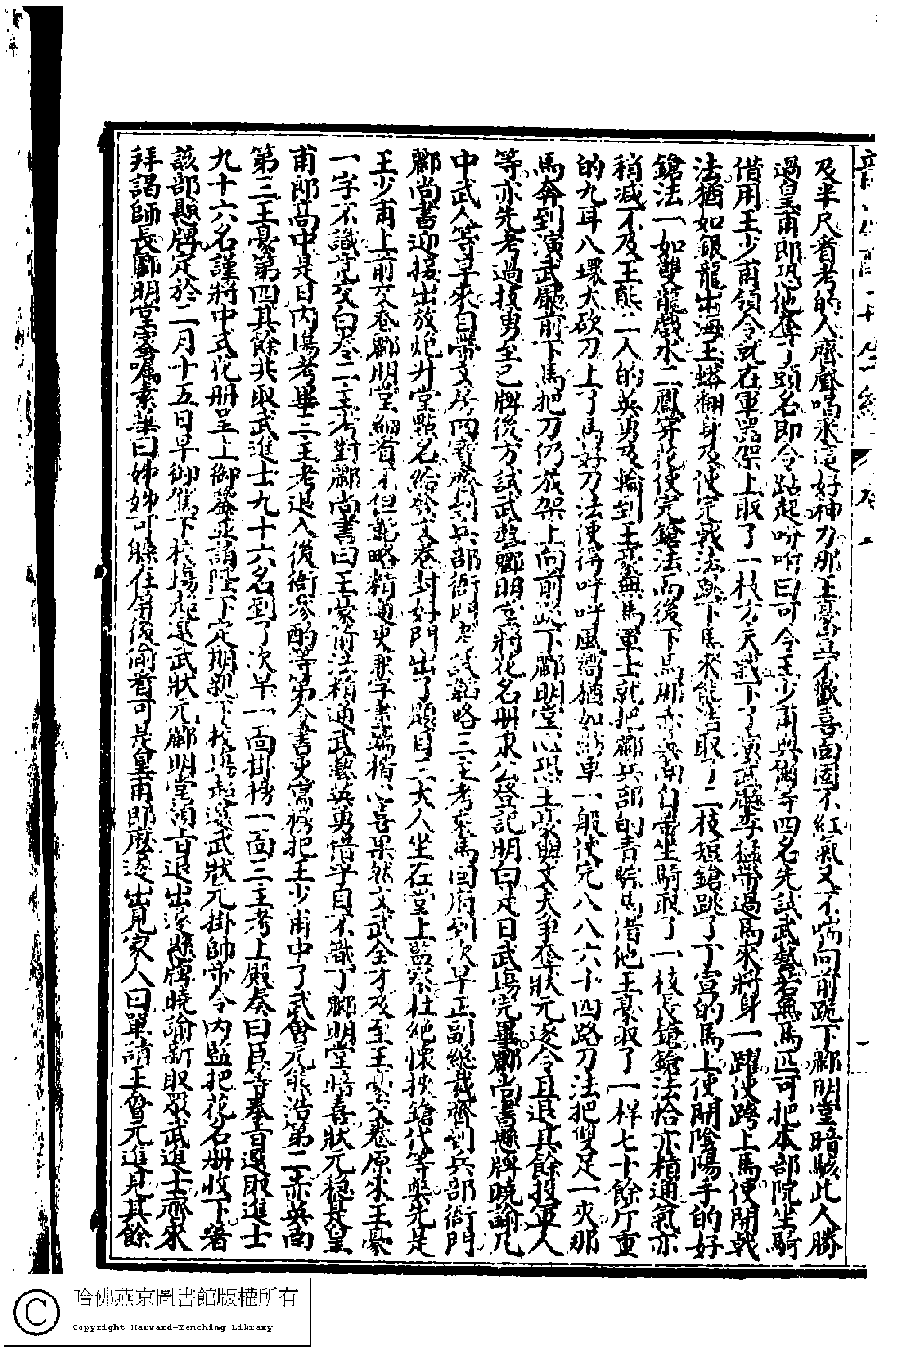 及半尺看考的人齊聲喝采道好神力那王豪並不歡喜面固不紅氣又不喘向前跪下酈明堂暗駭此人勝
過皇甫郎恐他奪了頭名即令站起吩咐曰可令王少甫與衛等四名先試武藝若無馬匹可把本部院坐騎
借用王少甫領令就在軍器架上取了一枝方天戟下了演武廳李猛帶過馬來將身一躍便跨上馬使開戟
法猶如銀龍出海玉蟒翻身及使完戟法跳下馬來熊浩取了二枝短鎗跳了丁宣的馬上使開陰陽手的好
鎗法一如雙龍戲水二鳳穿花使完鎗法而後下馬那赤英南自帶坐騎取了一枝長鎗鎗法恰亦精通氣亦
稍減不及王熊二人的英勇及輪到王豪無馬軍士就把酈兵部的青騌馬借他王豪取了一樣七十餘斤重
的九耳八環大砍刀上了馬好刀法使得呼呼風響猶如紡車一般使完八八六十四路刀法把雙足一夾那
馬奔到演武廳前下馬把刀仍放架上向前跪下酈明堂心恐王豪與丈夫爭奪狀元遂令且退其餘投軍人
等亦先考過技勇至已牌後方試武藝酈明堂將花名册求公登記明白是日武場完畢酈尚書懸牌曉諭凡
中武人等早來自帶文房四寶齊到兵部衙門考試韜略三主考乘馬回府到次早正副總裁齊到兵部衙門
酈尚書迎接出放炮升堂點名給發文卷封好門出了題目三大人坐在堂上監察杜絕懷挾鎗代等獘先是
王少甫上前交卷酈明堂細看不但韜略精通更兼字畫端楷心喜果然文武全才及至王豪交卷原來王豪
一字不識竟交白卷二主考對酈尚書曰王豪箭法精通武藝英勇惜乎目不識丁酈明堂暗喜狀元穩是皇
甫郎高中是日內場考畢三主考退入後衙參酌等第令書吏寫榜把王少甫中了武會元熊浩第二赤英南
第三王豪第四其餘共取武進士九十六名到了次早一面掛榜一面三主考上殿奏曰臣等奉旨選取進士
九十六名謹將中式花册呈上御覽並請陛下定期親下校場起選武狀元掛帥帝令內監把花名册收下著
該部懸牌定於二月十五日早御駕下校場起選武狀元酈明堂領旨退出遂懸牌曉諭新取眾武進士齊來
拜謁師長酈明堂密囑素華曰姊姊可躲在屏後偷看可是皇甫郎麼遂出見家人曰單請王會元進見其餘
哈佛燕京圖書館版權所有
Copyright Harvard-Yenching Library